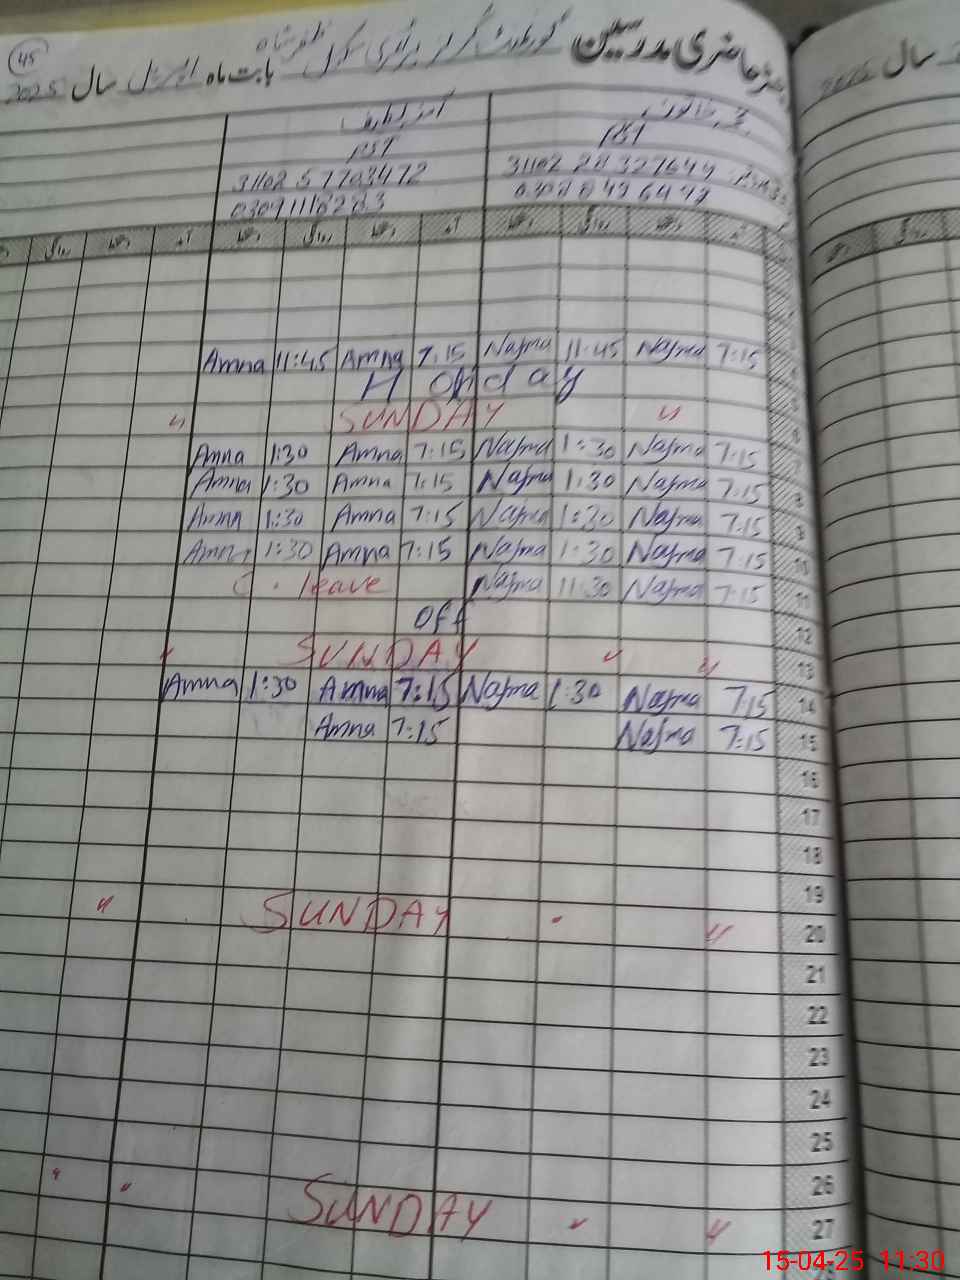 45
حاضری مدرسین گورنمنٹ گرلز پرائمری سکول بابت ماہ اپریل سال 2025
سال
PST PST
31102
روانگی آمد روانگی آمد روانگی
Najma 7:15 Najma 11:45 Amna 7:15 Amna 11:45
Honday
" SUNDAY "
Amna 1:30 Amna 7:15 Najma 1:30 Najma 7:15 7
Amna 1:30 Amna 7:15 Najma 1:30 Najma 7:15 8
Amna 1:30 Amna 7:15 Najma 1:30 Najma 7:15 9
Amna 1:30 Amna 7:15 Najma 1:30 Najma 7:15 10
leave Najma 11:30 Najma 7:15 11
Off 12
" SUNDAY " " 13
Amna 1:30 Amna 7:15 Najma 1:30 Najma 7:15 14
Amna 7:15 Najma 7:15 15
16
17
18
19
" SUNDAY " 20
21
22
23
24
25
26
" " SUNDAY " " 27
15-04-25 11:30